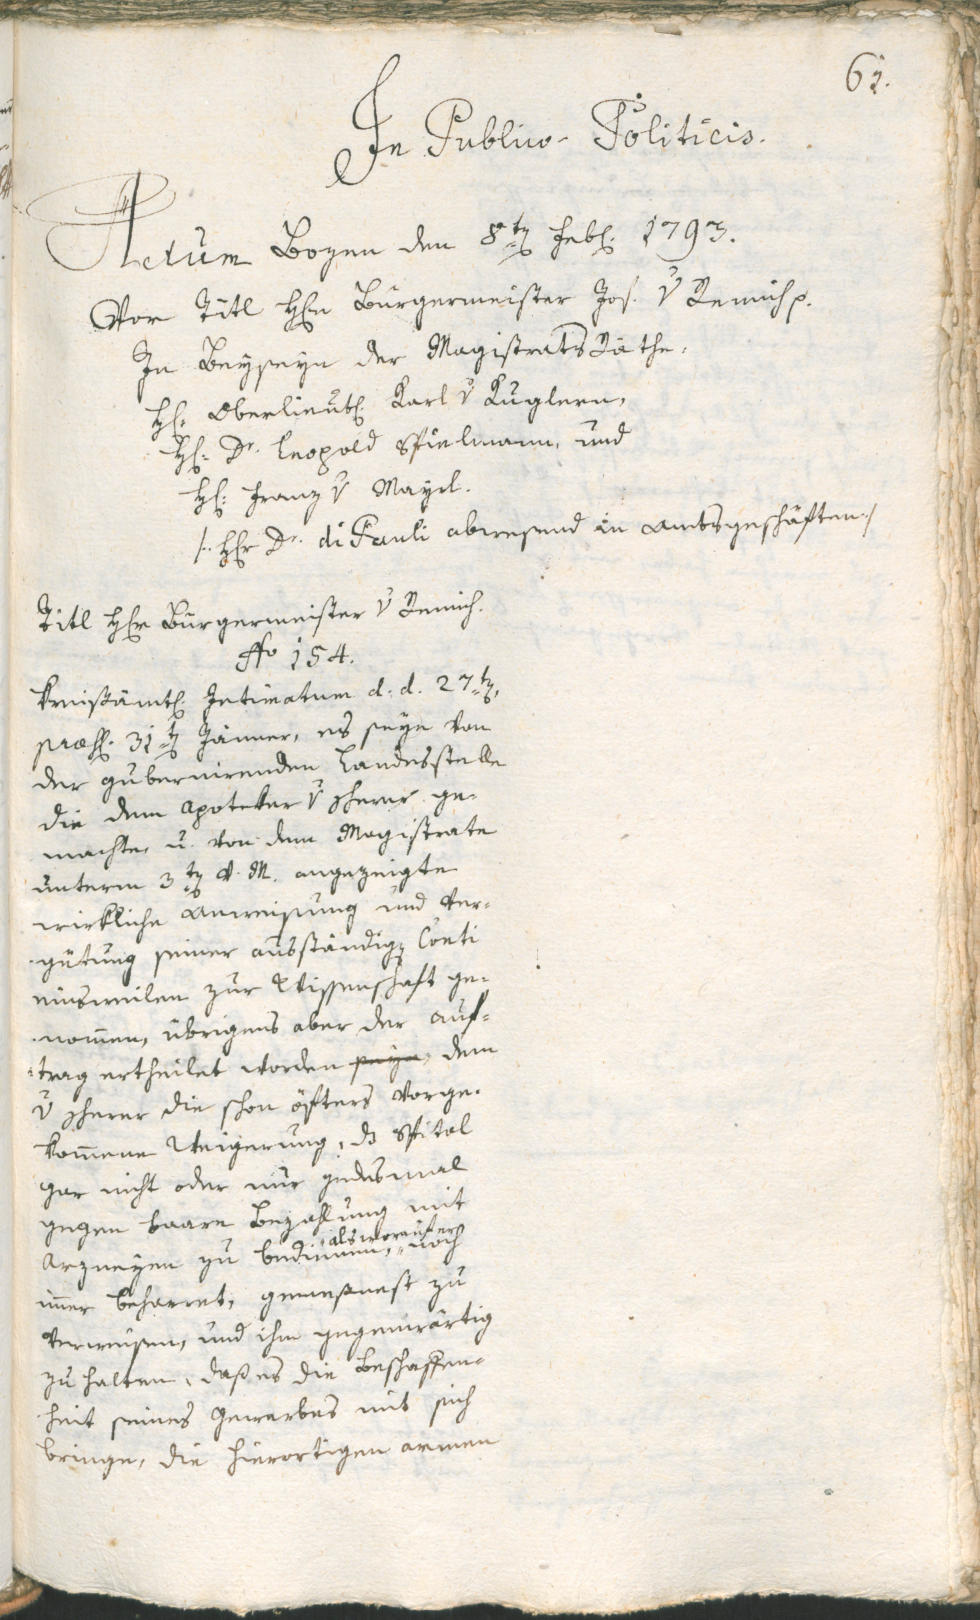 62.
In Publico-Politicis.
Actum Bozen den 8tn Febl. 1793.
Vor Titl Hrn Bürgermeister Jos. v Remich p.
In Beyseyn der Magistrats Räthe,
H: Oberlieut: Karl v Kuglern,
H: Dr. Leopold Spielmann, und
H: Franz v Mayrl.
/: Hr Dr. di Pauli abwesend in Amtsgeschäften :/
Titl Hr Bürgermeister v Remich.
No 154.
Kreißämtl: Intimatum d. d. 27tn,
præs: 31tn Jänner, es seye von
der gubernirenden Landesstelle
die dem Apoteker v Scherer ge-
machte, u. von dem Magistrate
unterm 3tn v. M. angezeigte
wirkliche Anweisung und Ver-
gütung seiner ausständign Conti
einsweilen zur Wissenschaft ge-
nom̄en, übrigens aber der Auf-
trag ertheilet worden seye, dem
v Scherer die schon öfters vorge-
kom̄ene Weigerung, ds Spital
gar nicht oder nur jedesmal
gegen baare Bezahlung mit
Arzneyen zu bedienen, als worauf er noch
im̄er beharret, gemeßnest zu
verweisen, und ihm gegenwärtig
zu halten, daß es die Beschaffen-
heit seines Gewerbes mit sich
bringe, die hierortigen armen